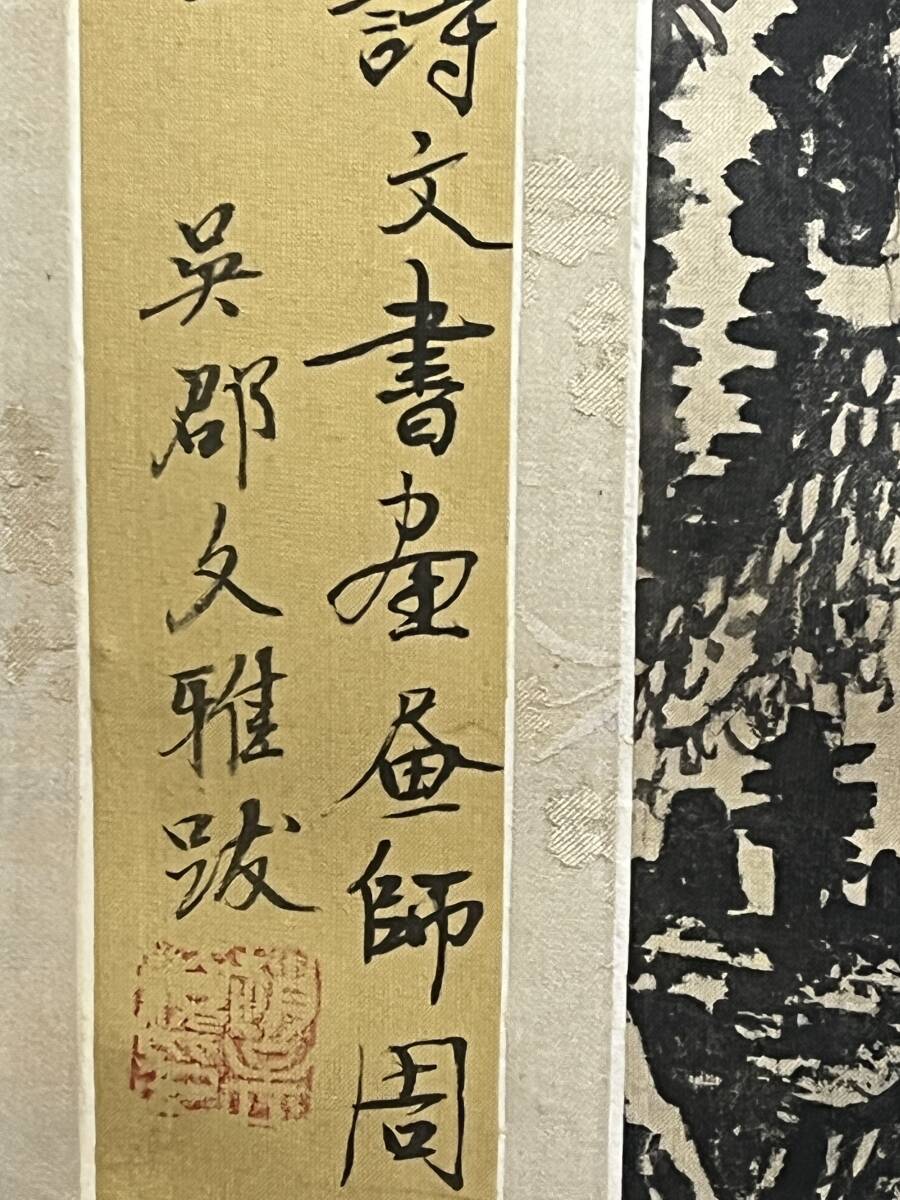 詩文書畫畫師周
吳郡文雅跋